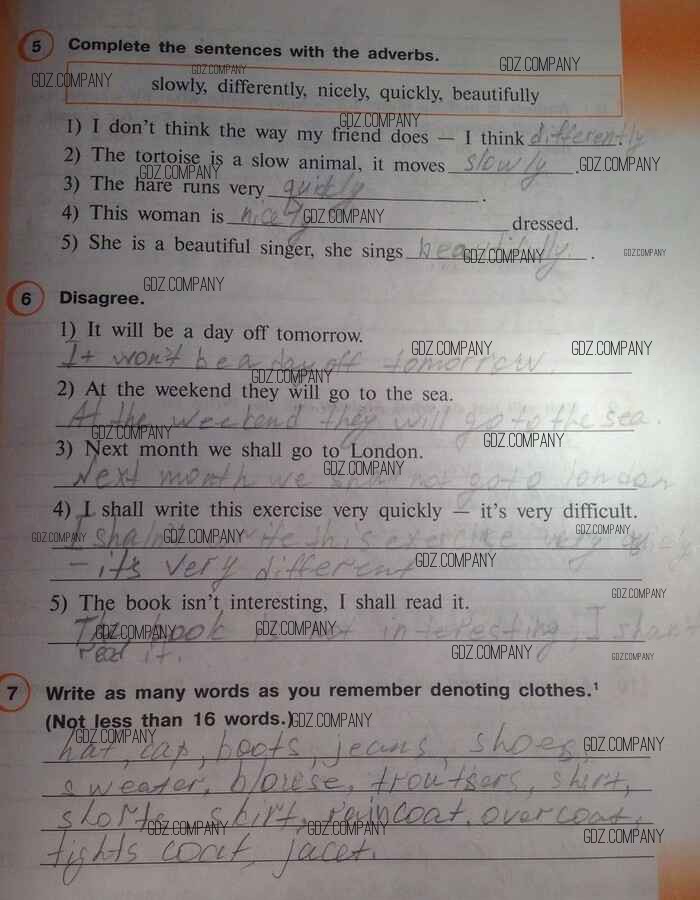 5 Complete the sentences with the adverbs.
GDZ.COMPANY GDZ.COMPANY GDZ.COMPANY
slowly, differently, nicely, quickly, beautifully
GDZ.COMPANY
1) I don't think the way my friend does — I think differently.
2) The tortoise is a slow animal, it moves slowly.
GDZ.COMPANY GDZ.COMPANY
3) The hare runs very quickly.
4) This woman is nicely dressed.
GDZ.COMPANY
5) She is a beautiful singer, she sings beautifully.
GDZ.COMPANY GDZ.COMPANY
GDZ.COMPANY
6 Disagree.
1) It will be a day off tomorrow.
GDZ.COMPANY GDZ.COMPANY
It won't be a day off tomorrow.
GDZ.COMPANY
2) At the weekend they will go to the sea.
At the weekend they will go to the sea.
GDZ.COMPANY GDZ.COMPANY
3) Next month we shall go to London.
GDZ.COMPANY
Next month we not go to london
4) I shall write this exercise very quickly — it's very difficult.
GDZ.COMPANY GDZ.COMPANY GDZ.COMPANY
I write this exercise very
GDZ.COMPANY
- it's very different
GDZ.COMPANY
5) The book isn't interesting, I shall read it.
GDZ.COMPANY GDZ.COMPANY
The book is not interesting, I
GDZ.COMPANY GDZ.COMPANY
read it.
7 Write as many words as you remember denoting clothes.¹
(Not less than 16 words.) GDZ.COMPANY
GDZ.COMPANY GDZ.COMPANY
hat, cap, boots, jeans, shoes,
sweater, blouse, troutsers, shirt,
shorts, skirt, raincoat, overcoat,
GDZ.COMPANY GDZ.COMPANY GDZ.COMPANY
tights coat, jacet.